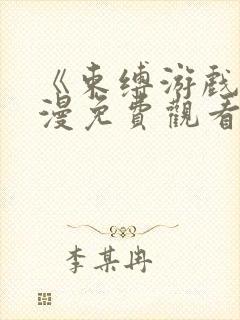 《束缚游戏
漫免費觀看
李某冉